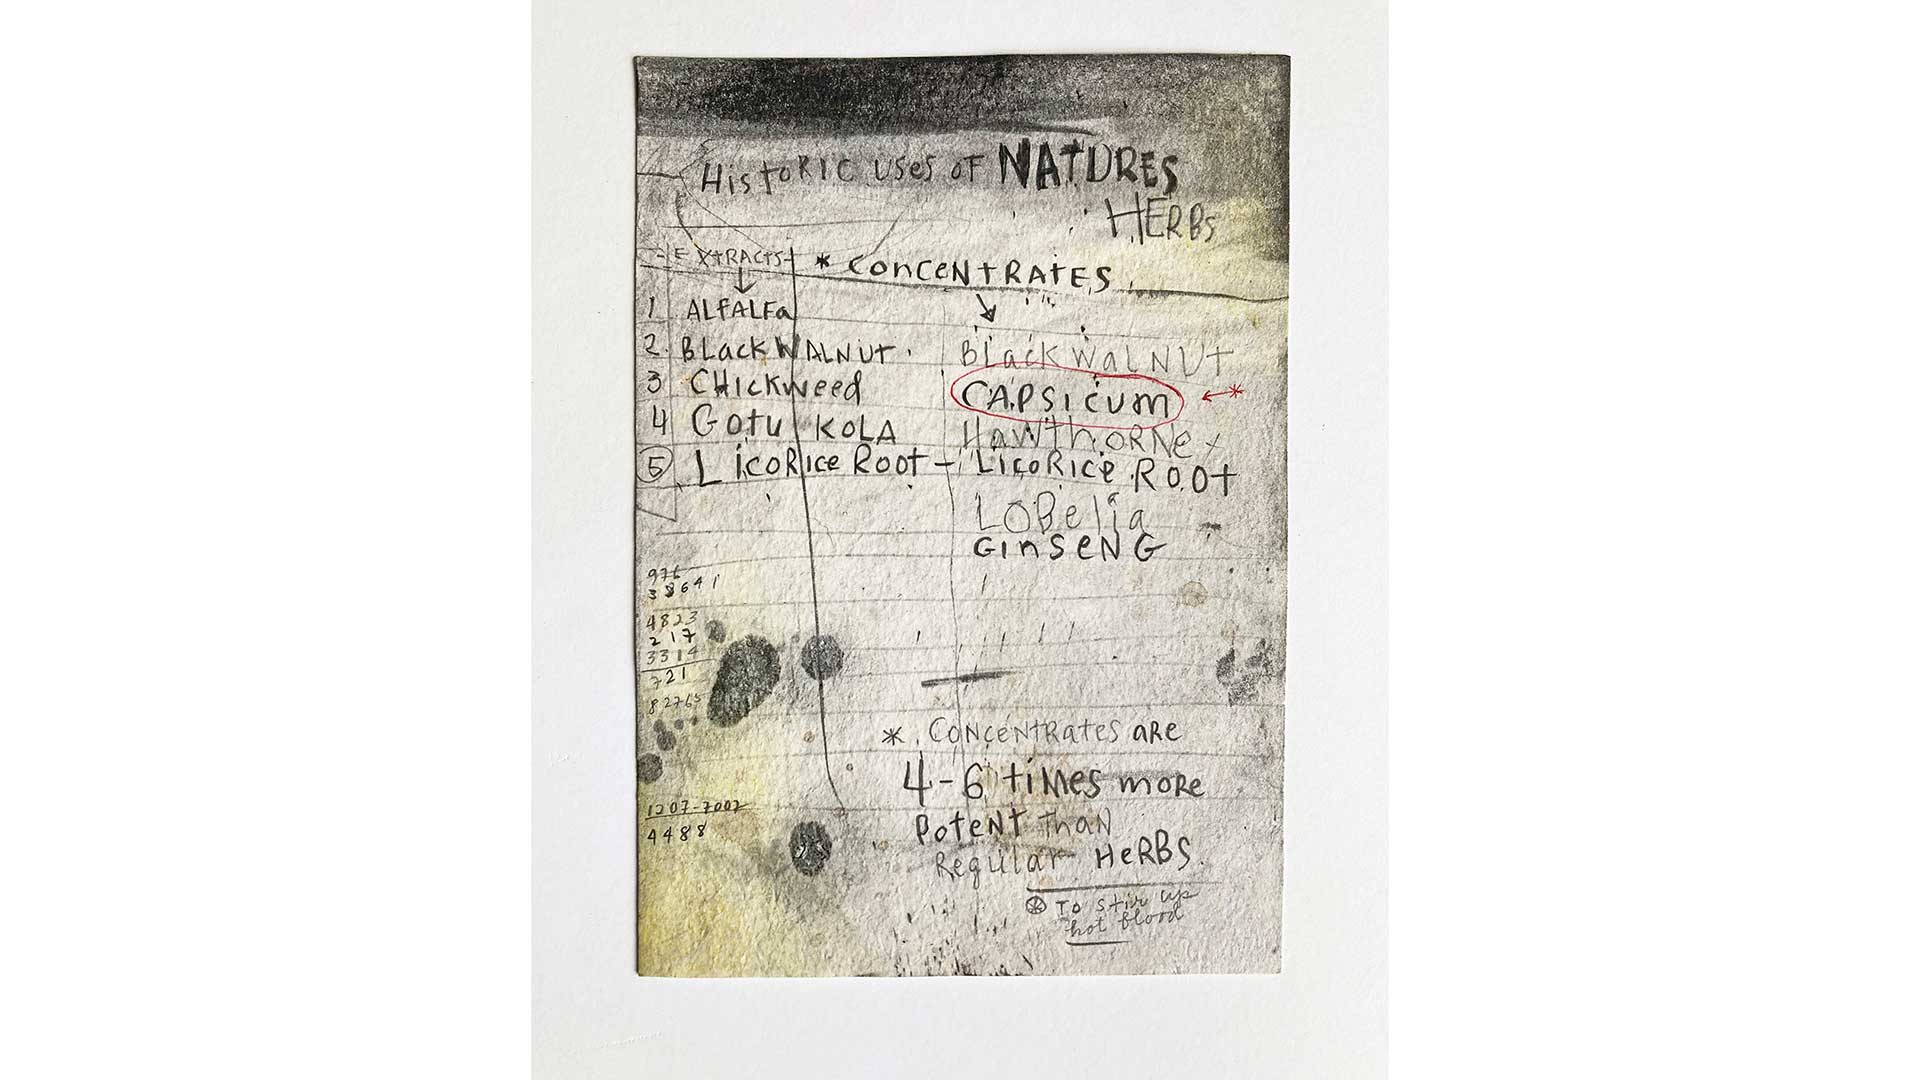 HistoRIC uses of NATURES
HERBS
-EXtRACtS-
* ConceNtRAtES
1 ALFALFa
2. BLack WALNUt.
3 CHIckweed
4 Gotu KOLA
5 LicoRice Root -
Black WaLNUt
CAPSicum
HawthoRNe
LicoRice Root
LOBelia
GinseNG
976
38641
4823
217
3314
721
82765
1207-7002
4488
* CoNceNtRates aRe
4-6 times moRe
PoteNt thaN
RegUlar HeRBS.
To stir up
hot blood